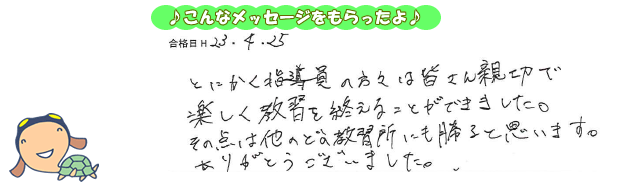 ♪こんなメッセージをもらったよ♪
合格日H 23.4.25
とにかく指導員の方々は皆さん親切で
楽しく教習を終えることができました。
その点は他のどの教習所にも勝ると思います。
ありがとうございました。